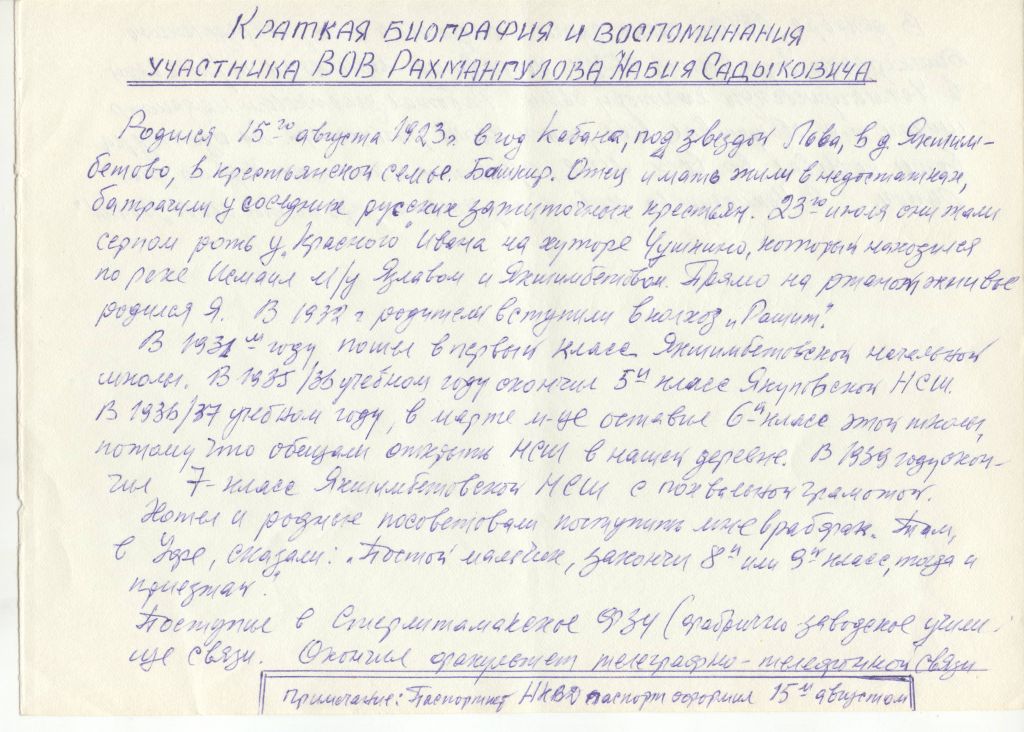 Краткая биография и воспоминания
участника ВОВ Рахмангулова Набия Садыковича
Родился 15го августа 1923г. в год Кабана, под звездой Льва, в д. Яхшим-
бетово, в крестьянской семье. Башкир. Отец и мать жили в недостатках,
батрачили у соседних русских зажиточных крестьян. 23го июля они жали
серпом рожь у „Красного" Ивана на хуторе Чушкино, который находился
по реке Исмаил м/у Язлавом и Яхшимбетовом. Прямо на ржаной жнивье
родился Я. В 1932 г родители вступили в колхоз „Рашит".
В 1931м году пошел в первый класс Яхшимбетовской начальной
школы. В 1935/36 учебном году окончил 5й класс Якуповской НСШ.
В 1936/37 учебном году, в марте м-це оставил 6й класс этой школы,
потому что обещали открыть НСШ в нашей деревне. В 1939 году окон-
чил 7-класс Яхшимбетовской НСШ с похвальной грамотой.
Хотел и родные посоветовали поступить мне в рабфак. Там,
в Уфе, сказали: „Постой мальчик, закончи 8й или 9й класс, тогда и
приезжай."
Поступил в Стерлитамакское ФЗУ (фабрично заводское учили-
ще связи. Окончил факультет телеграфно-телефонной связи
Примечание: Паспортист НКВД паспорт оформил 15м августом